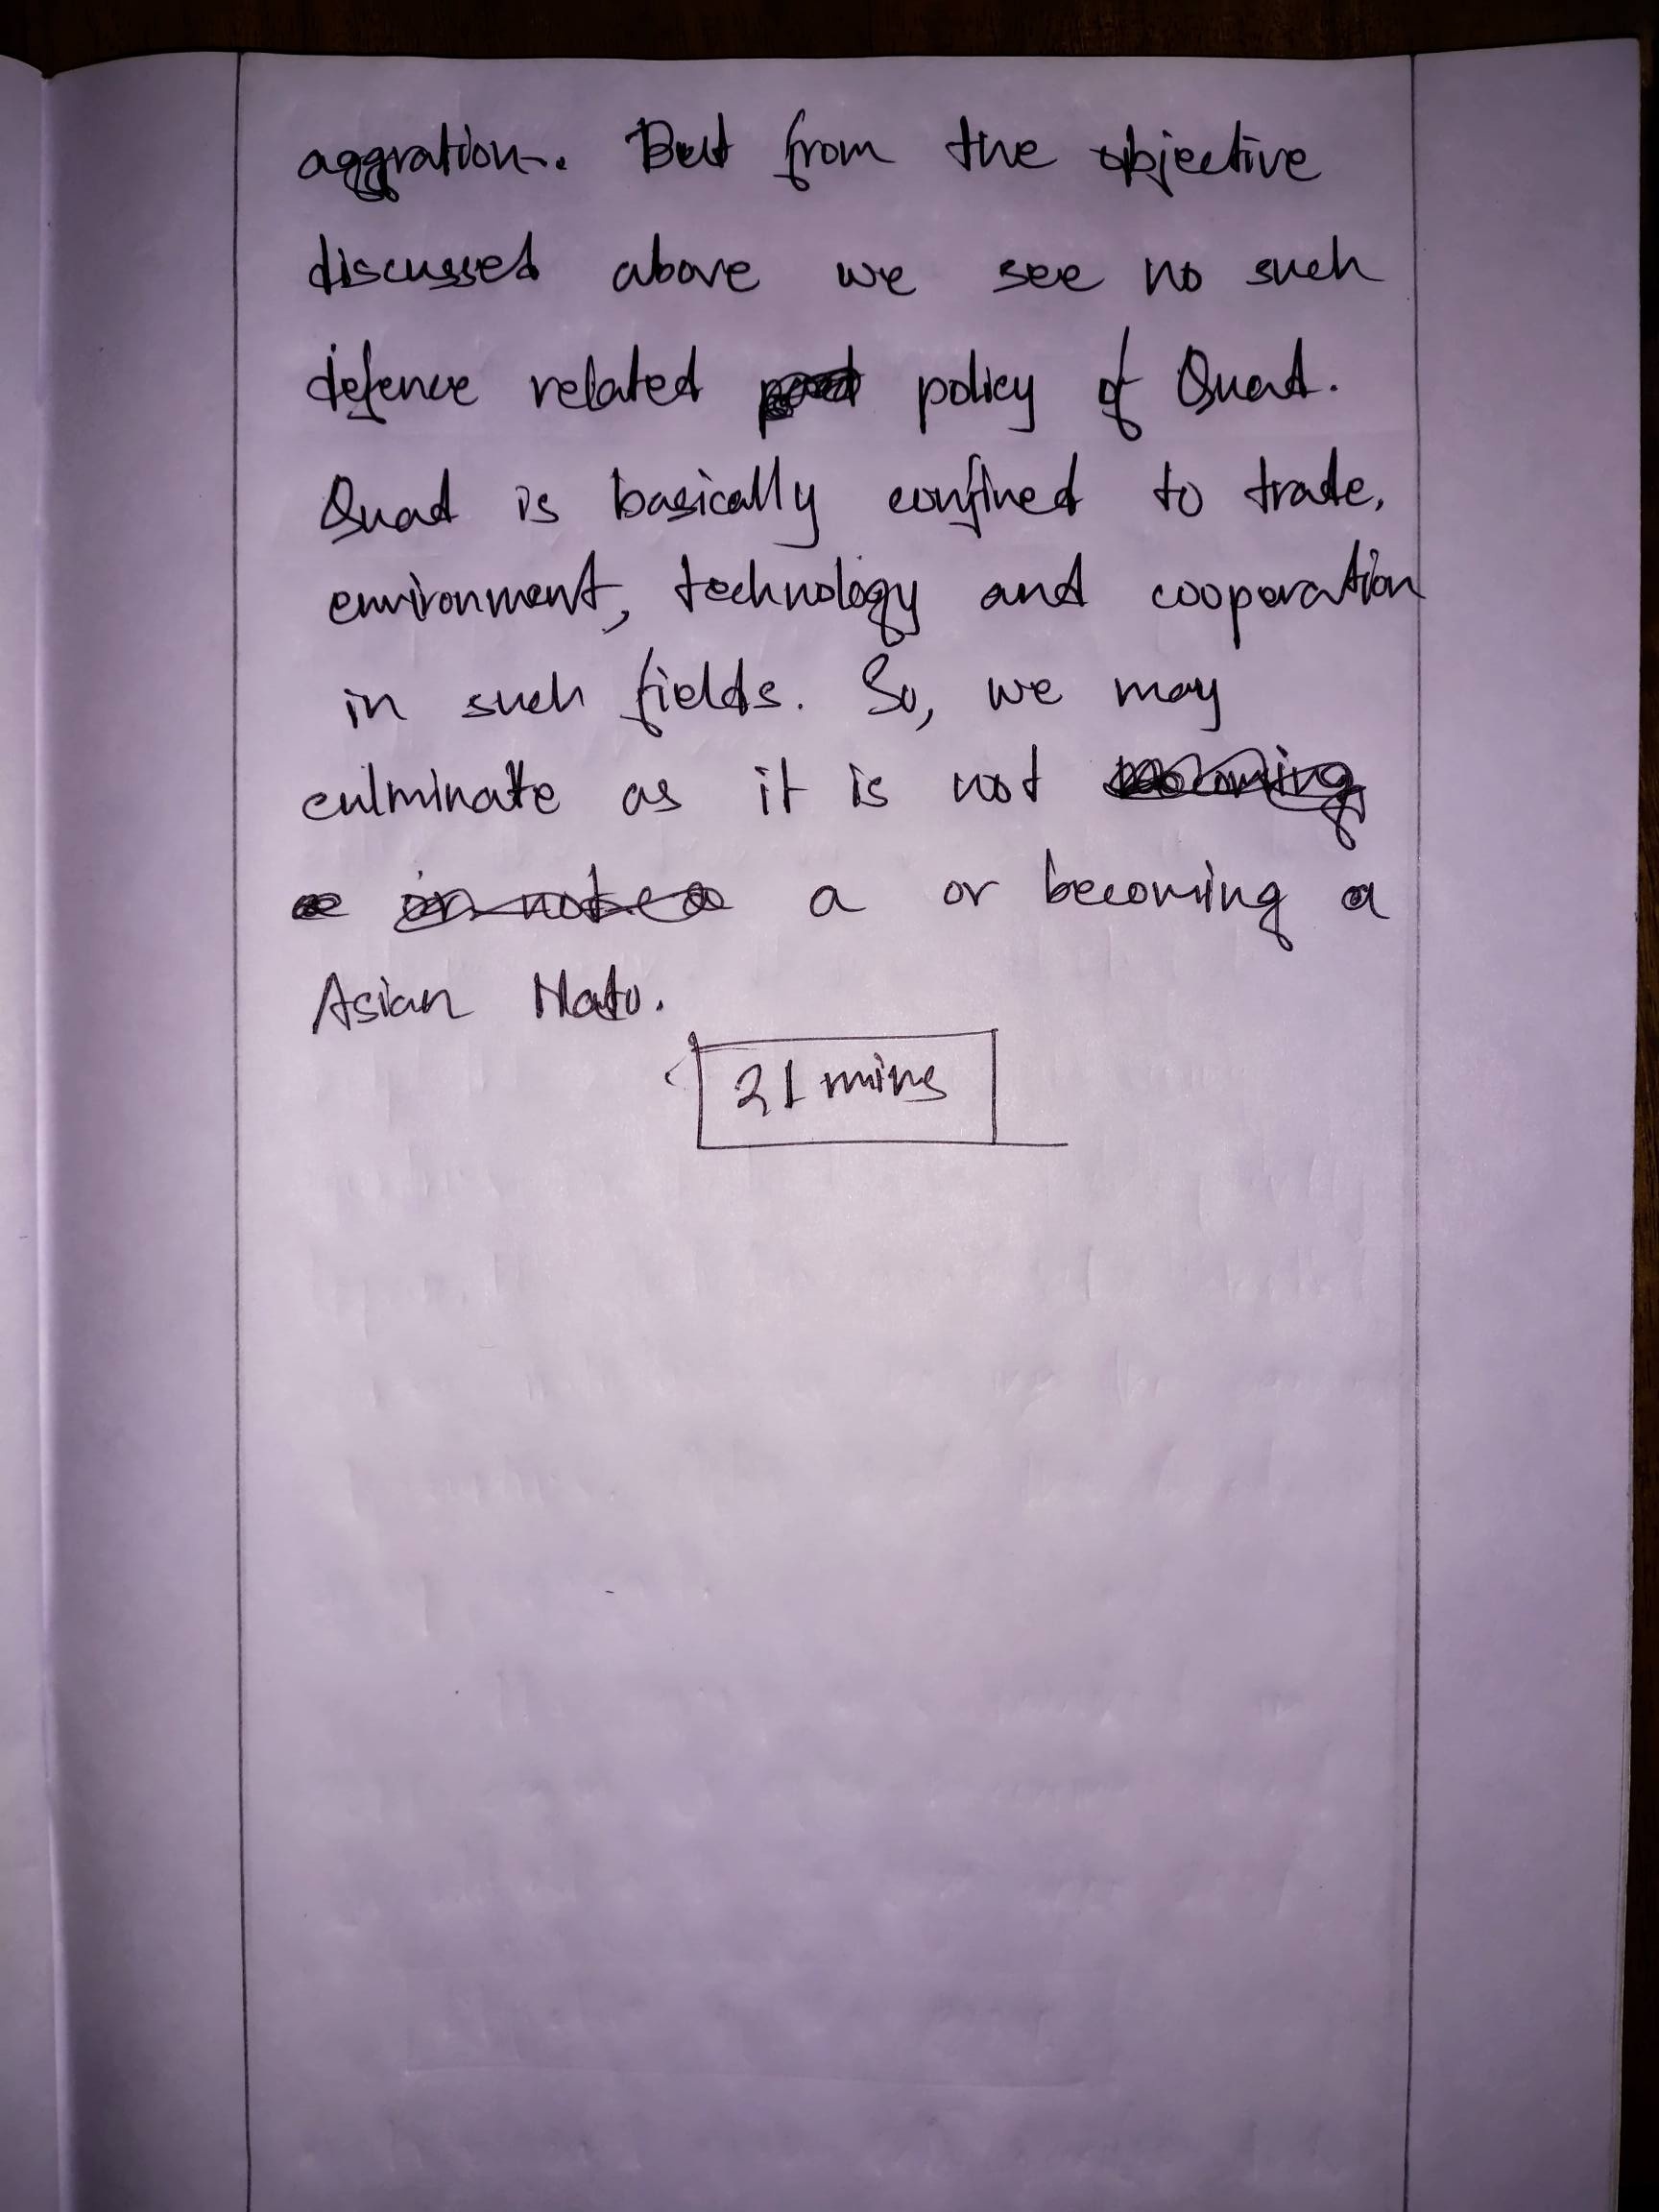 aggration. But from the objective
discussed above we see no such
defence related policy of Quad.
Quad is basically confined to trade,
environment, technology and cooperation
in such fields. So, we may
culminate as it is not
a or becoming a
Asian Nato.
21 mins